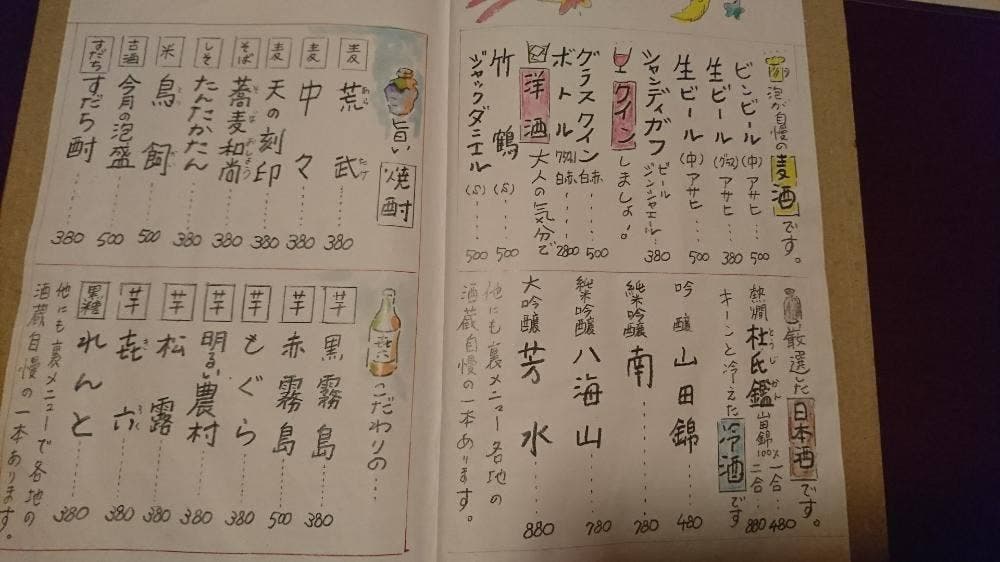 泡が自慢の麦酒です。
ビンビール(中)アサヒ……500
生ビール(グラス)アサヒ……380
生ビール(中)アサヒ……500
シャンディガフ ビール ジンジャエール…380
ワインしましょ!
グラスワイン 白赤……500
ボトル フルボトル 白赤……2800
洋酒 大人の気分で
竹鶴(S)……500
ジャックダニエル(S)……500
厳選した日本酒です。
熱燗 杜氏鑑 とうじかん 山田錦100% 一合…480 二合…880
キーンと冷えた冷酒です
吟醸 山田錦……480
純米吟醸 南……780
純米吟醸 八海山……780
大吟醸 芳水……880
他にも裏メニュー各地の
酒蔵自慢の一本あります。
旨い焼酎
麦 荒武 あらたけ……380
麦 中々……380
麦 天の刻印……380
そば 蕎麦和尚 そばおしょう……380
しそ たんたかたん……380
米 鳥飼 とりかい……500
古酒 今月の泡盛……500
すだち すだち酎……380
こだわりの…
芋 黒霧島……380
芋 赤霧島……500
芋 もぐら……380
芋 明るい農村……380
芋 松露……380
芋 㐂六 きろく……380
黒糖 れんと……380
他にも裏メニューで各地の
酒蔵自慢の一本あります。